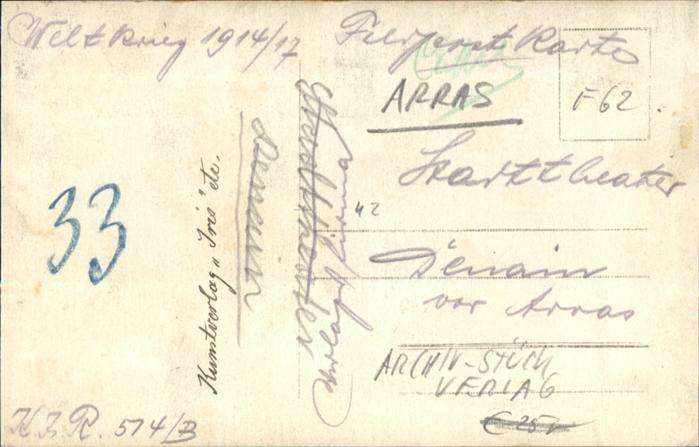 Weltkrieg 1914/17
Feldpost Karte
ARRAS
F62.
Stadttheater
42
Denain
vor Arras
ARCHIV-STÜCK
VERLAG
33
Kunstverlag „Iris" etc.
Denain
Verlagsfirma
K.Z.R. 514/B